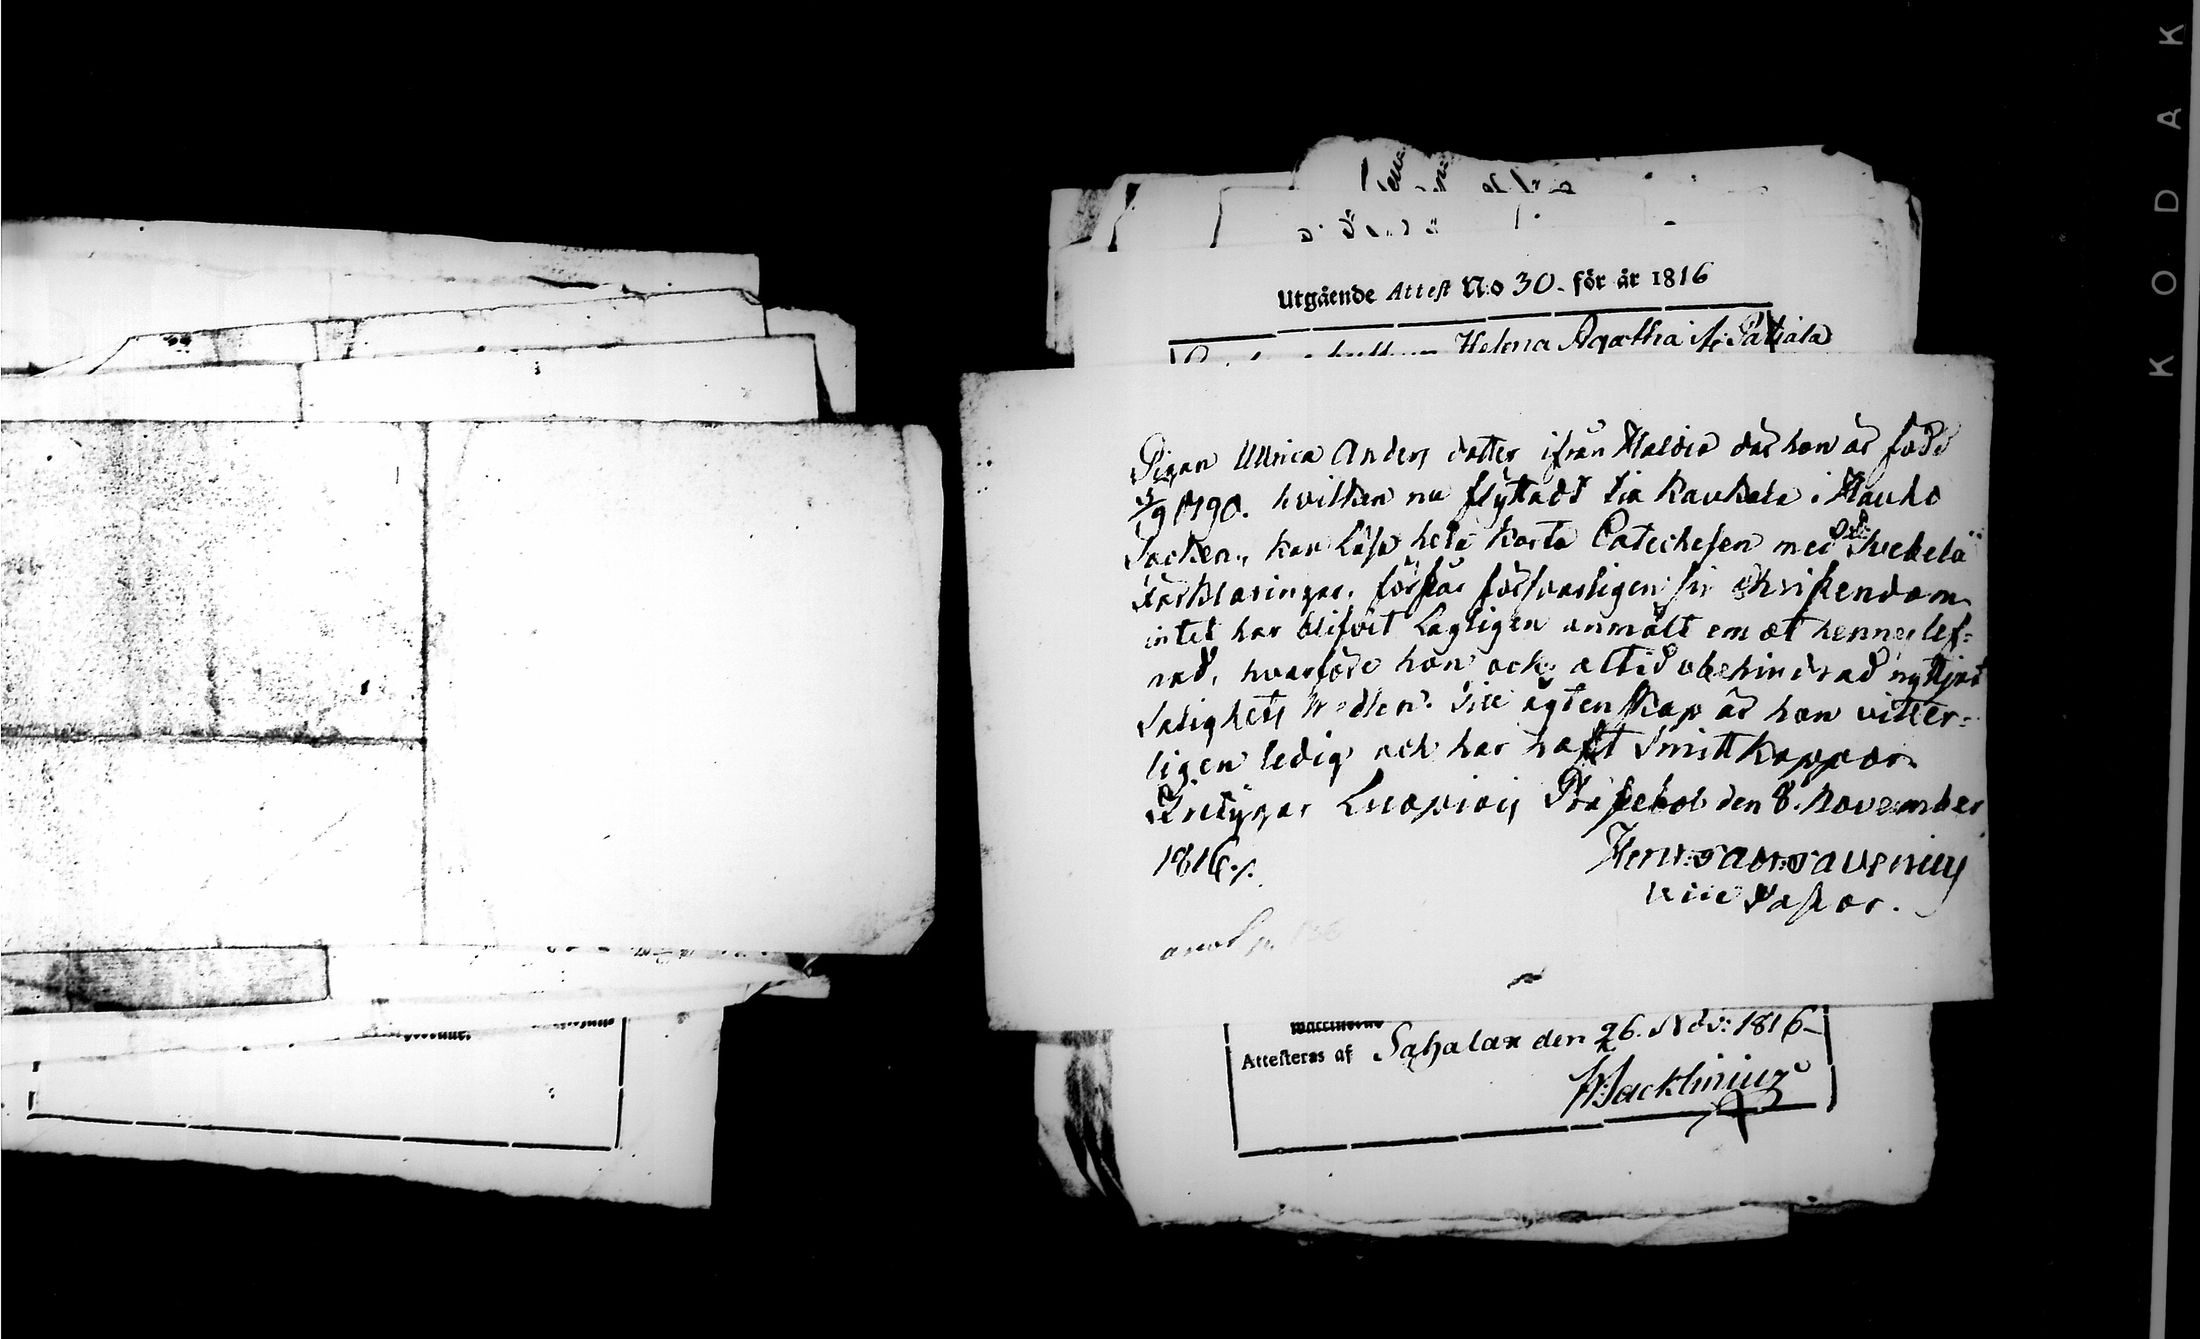 Utgående Attest N:o 30. för år 1816
Helena Agatha
Pigan Ullrica Anders dotter ifrån Haldia där hon är född
3/9 1790. hvilken nu flyttadt til Kaukala i Hauho
Socken, kan läsa hela korta Catechesen med Svebelii
förklaringar, förstår försvarligen sin Christendom
intet har blifvit Lagligen anmält om at hennes lef-
nad, hvarföre hon ock altid obehindrad nyttjat
Salighets Medlen. Till ägtenskap är hon vitter-
ligen ledig och har haft Smittkoppor.
Intygar Luopiois Prestebol den 8. November
1816./.
Henr: Gabr: Gavenius
vice Pastor.
Attesteras af Sahalax den 26. Nov: 1816
KODAK